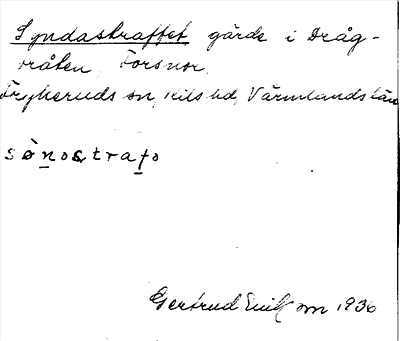 Syndastraffet gärde i Dråg-
råten, Forsnor.
Frykeruds sn, Kils hd, Värmlands län
sònostrafo
Gertrud Eriksson 1936